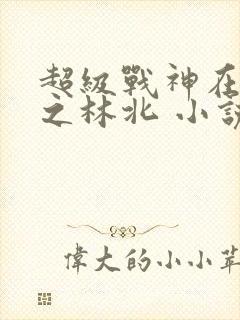 超級戰神在
之林北 小說
偉大的小小草